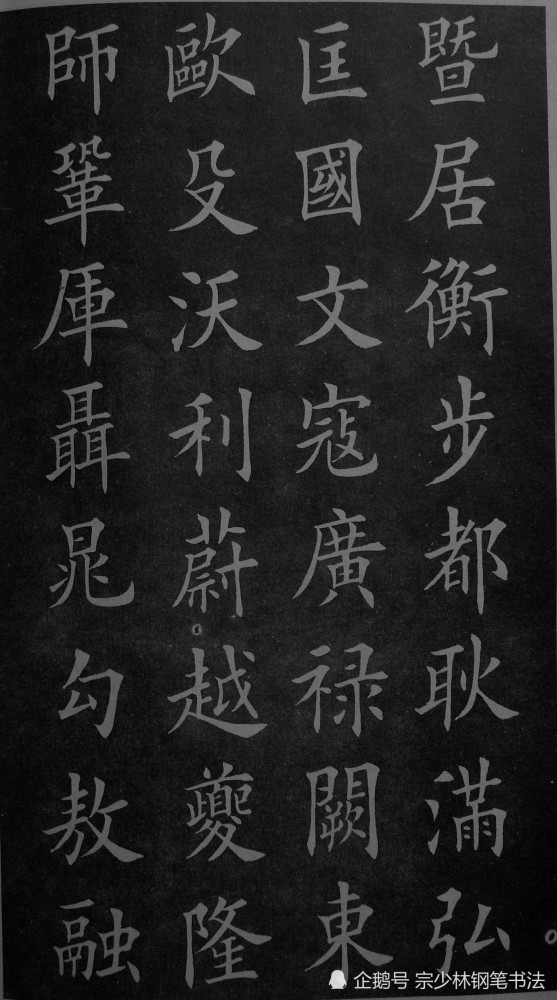 暨居衡步都耿滿弘
匡國文寇廣禄闕東
歐殳沃利蔚越夔隆
師鞏厙聶晁勾敖融
企鹅号 宗少林钢笔书法